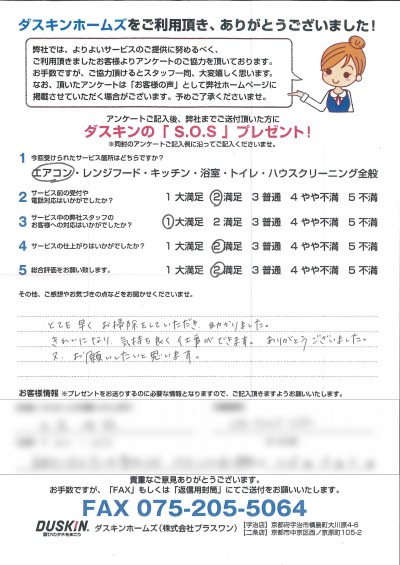 ダスキンホームズをご利用頂き、ありがとうございました！
弊社では、よりよいサービスのご提供に努めるべく、
ご利用頂きましたお客様よりアンケートのご協力を頂いております。
お手数ですが、ご協力頂けるとスタッフ一同、大変嬉しく思います。
なお、頂いたアンケートは「お客様の声」として弊社ホームページに
掲載させていただく場合がございます。予めご了承くださいませ。
アンケートご記入後、弊社までご送付頂いた方に
ダスキンの「S.O.S」プレゼント！
※同封のアンケートご記入例に沿ってご記入くださいませ。
1 今回受けられたサービス箇所はどちらですか？
エアコン・レンジフード・キッチン・浴室・トイレ・ハウスクリーニング全般
2 サービス前の受付や
電話対応はいかがでしたか？ 1 大満足 2 満足 3 普通 4 やや不満 5 不満
3 サービス中の弊社スタッフの
お客様への対応はいかがでしたか？ 1 大満足 2 満足 3 普通 4 やや不満 5 不満
4 サービスの仕上がりはいかがでしたか？ 1 大満足 2 満足 3 普通 4 やや不満 5 不満
5 総合評価をお願い致します。 1 大満足 2 満足 3 普通 4 やや不満 5 不満
その他、ご感想やお気づきの点などをお聞かせくださいませ。
とても早くお掃除をしていただき、助かりました。
きれいになり、気持ち良く仕事ができます。ありがとうございました。
又、お願いしたいと思います。
お客様情報 ※プレゼントをお送りするのに必要な情報となりますので、ご記入頂きますようお願いいたします。
貴重なご意見ありがとうございます。
お手数ですが、「FAX」もしくは「返信用封筒」にてご送付をお願いいたします。
FAX 075-205-5064
DUSKIN
喜びのタネをまこう
ダスキンホームズ（株式会社プラスワン）
【宇治店】京都府宇治市槇島町大川原4-6
【二条店】京都市中京区西ノ京原町105-2